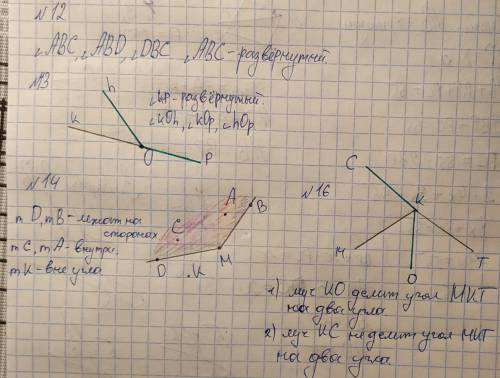 №12
∠ABC, ∠ABD, ∠DBC ∠ABC-развёрнутый.
№3
∠kp-развёрнутый.
∠kOh, ∠kOp, ∠hOp.
h
K
O
P
№14
т D, т B-лежат на сторонах
т C, т A-внутри.
т K-вне угла
A
B
C
D
.K
M
№16
C
K
M
O
T
1) луч KO делит угол MKT
на два угла
2) луч KC не делит угол MKT
на два угла.